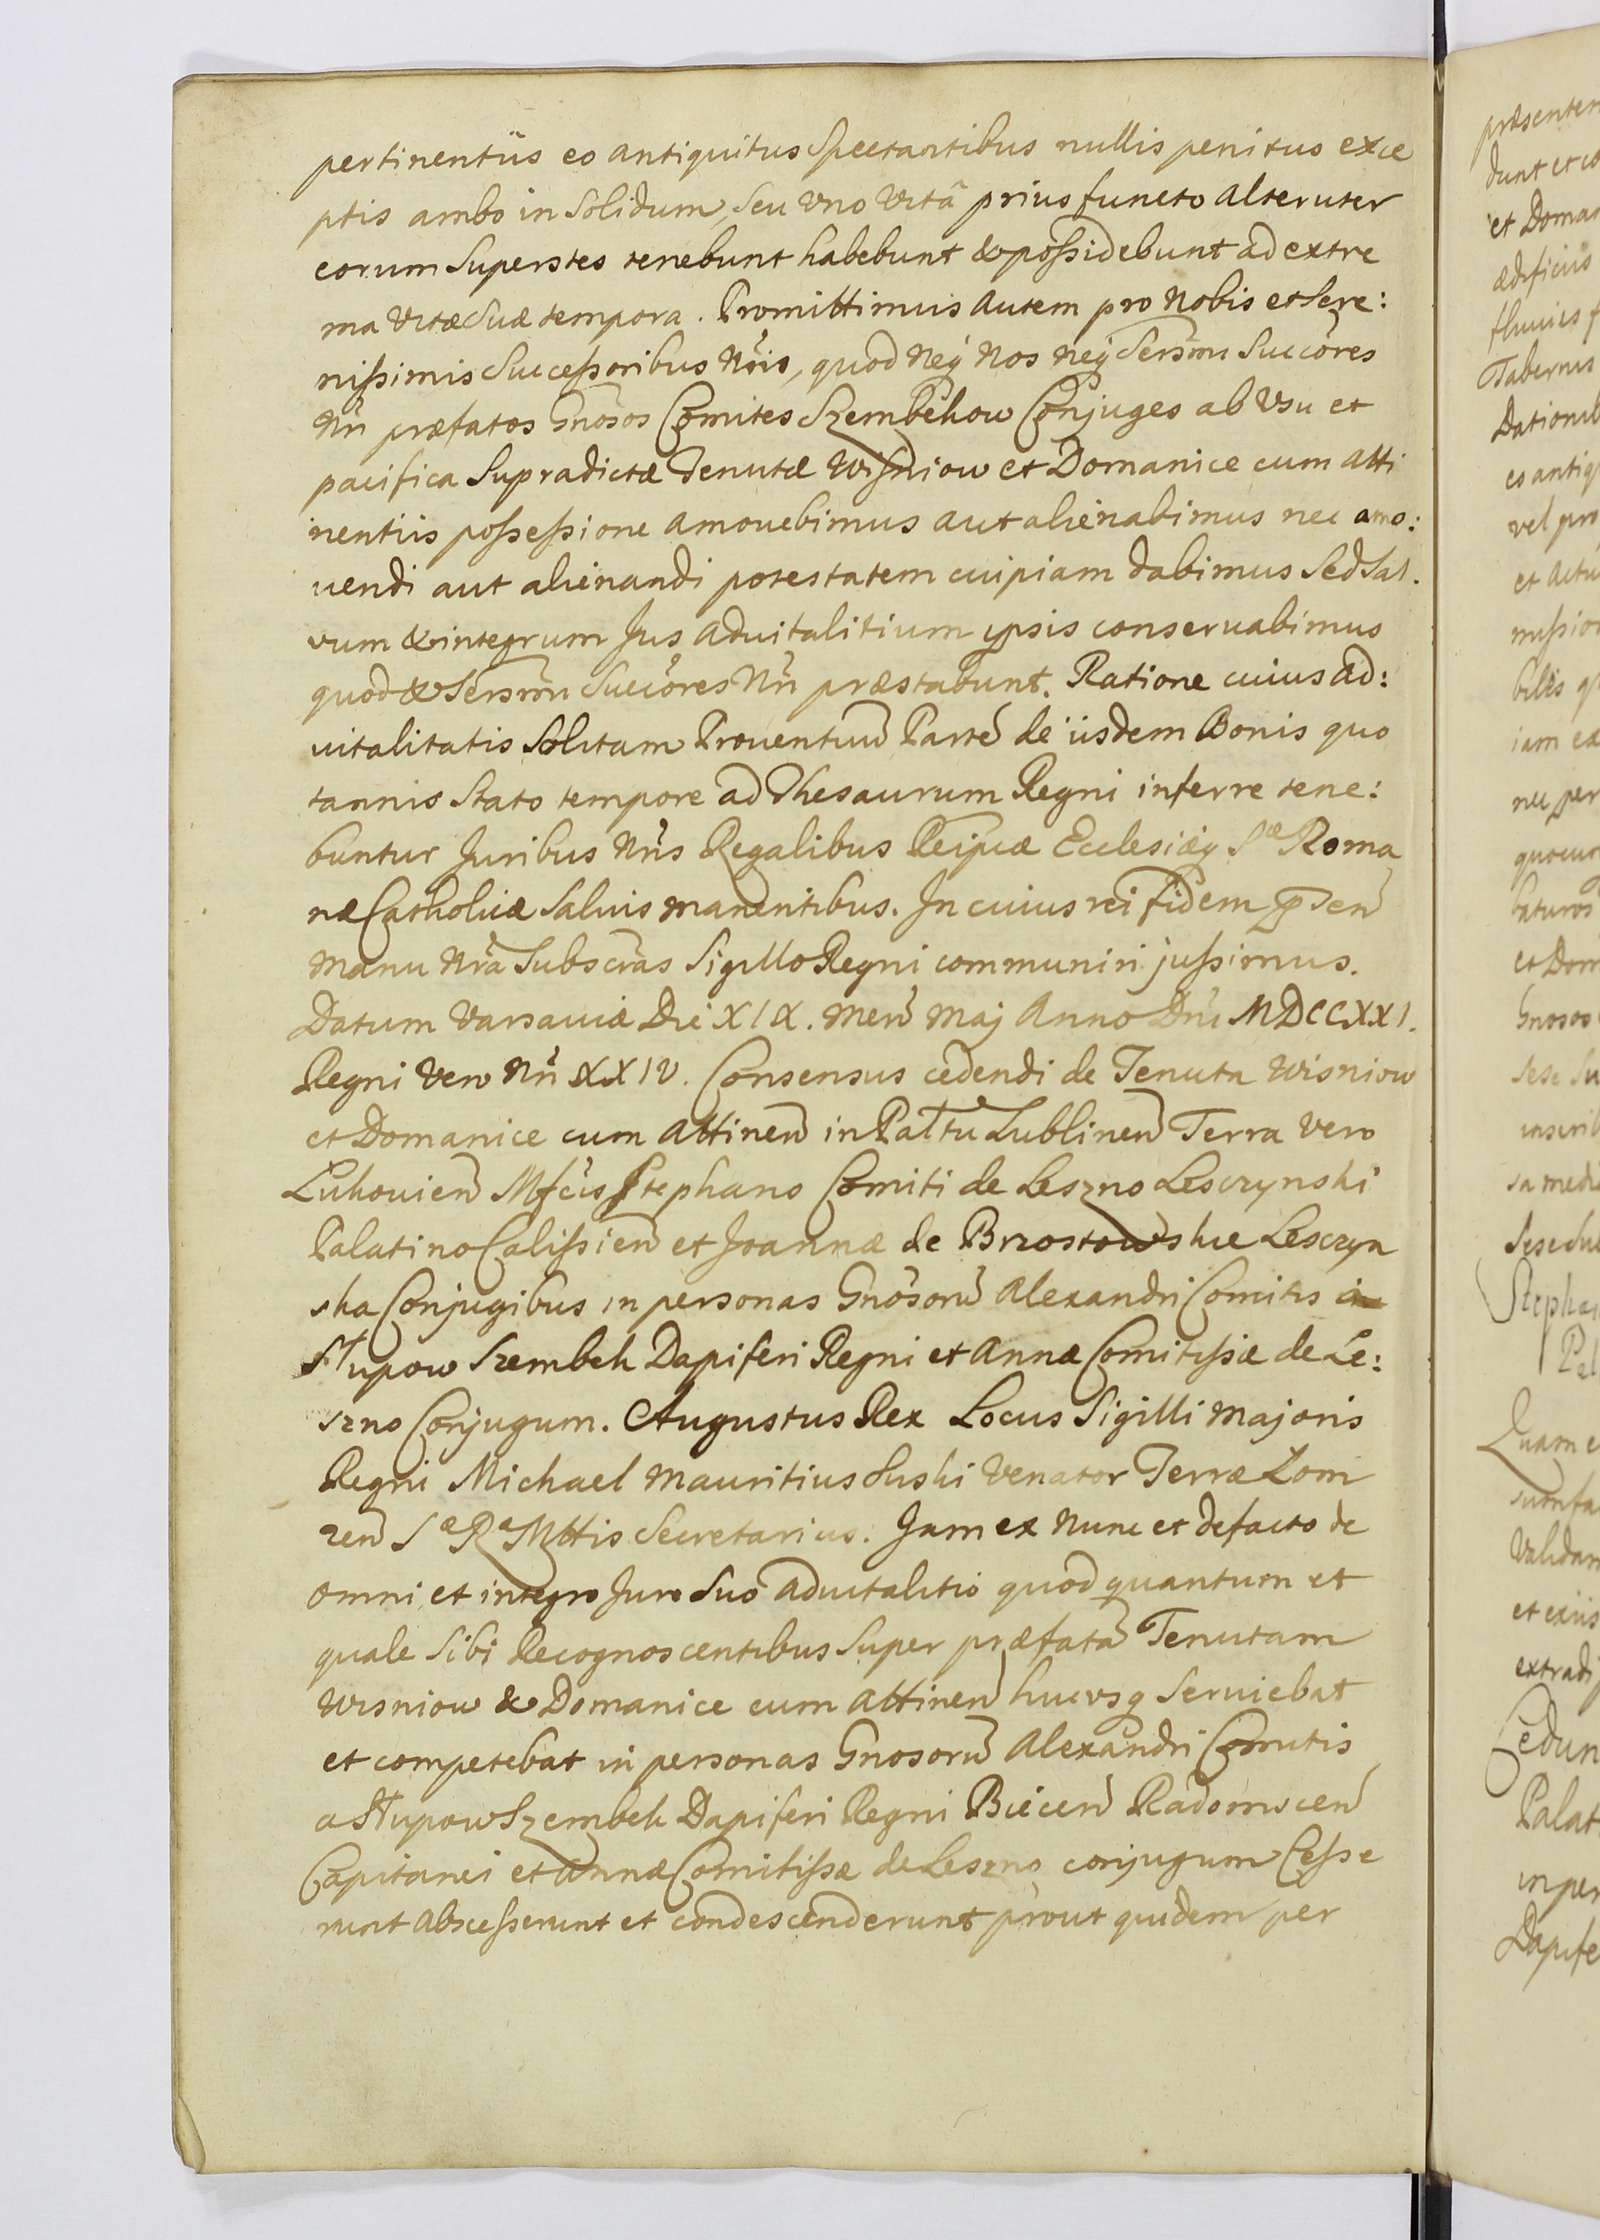 pertinentiis eo antiquitus Spectantibus nullis penitus exce
ptis ambo in Solidum, Seu Vno Vitã prius functo Alteruter
eorum Superstes tenebunt habebunt & poſsidebunt ad extre
ma Vitæ Suæ tempora. Promittimus Autem pro Nobis et Sere:
niſsimis Succeſsoribus Nr̃is, quod Neq̃ Nos neq̃ Serñmi Succõres
Nr̃i præfatos Gnõsos Comites Szembekow Conjuges ab Vsu et
pacifica Supradictæ Tenutæ Wiſniow et Domanice cum Atti
nentiis poſseſsione amouebimus aut alienabimus nec amo:
uendi aut alienandi potestatem cuipiam dabimus Sed Sal.
vum & integrum Jus Aduitalitium ipsis conseruabimus
quod & Serñmi Succõres Nr̃i præstabunt. Ratione cuius Ad:
uitalitatis Solitam Prouentuũ Partẽ de iisdem Bonis quo
tannis Stato tempore ad Thesaurum Regni inferre tene:
buntur Juribus Nr̃is Regalibus Reipcæ Ecclesiæq̃ Sæ Roma
næ Catholicæ Saluis manentibus. In cuius rei fidem p̃sen̄
manu Nr̃a Subscr̃as Sigillo Regni communiri juſsimus.
Datum Varsauiæ Die XIX. Men̄ Maj Anno Dñi MDCCXXI.
Regni Vero Nr̃i XXIV. Consensus cedendi de Tenuta Wisniow
et Domanice cum Attinen̄ in Pal̃tu Lublinen̄ Terra Vero
Lukouien̄ Mfcis Stephano Comiti de Leszno Lesczynski
Palatino Caliſsien̄ et Joannæ de Brzostowskie Lesczyn
ska Conjugibus in personas Gnõsorũ Alexandri Comitis in
Słupow Szembek Dapiferi Regni et Annæ Comitiſsæ de Le:
szno Conjugum. Augustus Rex Locus Sigilli Majoris
Regni Michael Mauritius Suski Venator Terræ Lom
zen̄ Sæ Ræ Mttis Secretarius. Jam ex Nunc et defacto de
omni et integro Jure Suo aduitalitio quod quantum et
quale Sibi Recognoscentibus Super præfatã Tenutam
Wisniow & Domanice cum Attinen̄ hucvsq̃ Seruiebat
et competebat in personas Gnosorũ Alexandri Comitis
a Słupow Szembek Dapiferi Regni Biecen̄ Radomscen̄
Capitanei et Annæ Comitiſsæ de Leszno conjugum Ceſse
runt Absceſserunt et condescenderunt prout quidem per
præsenten
dunt et co
et Doman
ædificiis
fluuiis f
Tabernis
Dationib
eo antiq
vel pro
et Actu
miſsion
biles q
iam ex
nec per
quocun
baturos
et Dom
Gnosos
Sese Su
inscrib
sa medi
Sese Sub
Stephan
Pal
Quam e
Validam
et exiis
extradi
Cedun
Palat
in per
Dapife